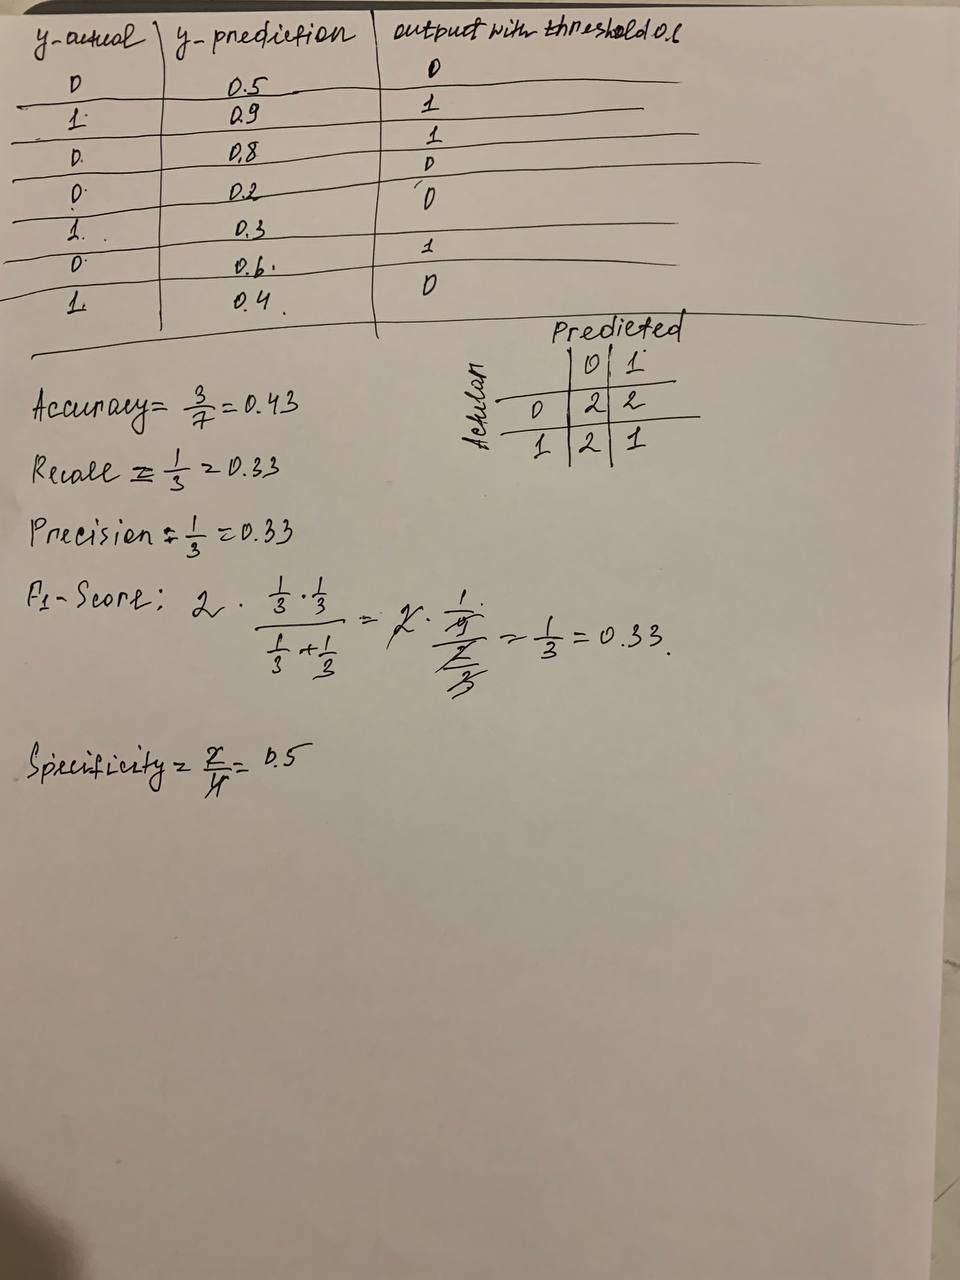 y-actual y-prediction output with threshold 0.6
0 0.5 0
1 0.9 1
0 0.8 1
0 0.2 0
1 0.3 0
0 0.6 1
1 0.4 0
Predicted
0 1
Actulan
0 2 2
1 2 1
Accuracy = 3/7 = 0.43
Recall = 1/3 = 0.33
Precision = 1/3 = 0.33
F1-Score: 2 · (1/3 · 1/3)/(1/3 + 1/3) = 2 · (1/9)/(2/3) = 1/3 = 0.33.
Specificity = 2/4 = 0.5